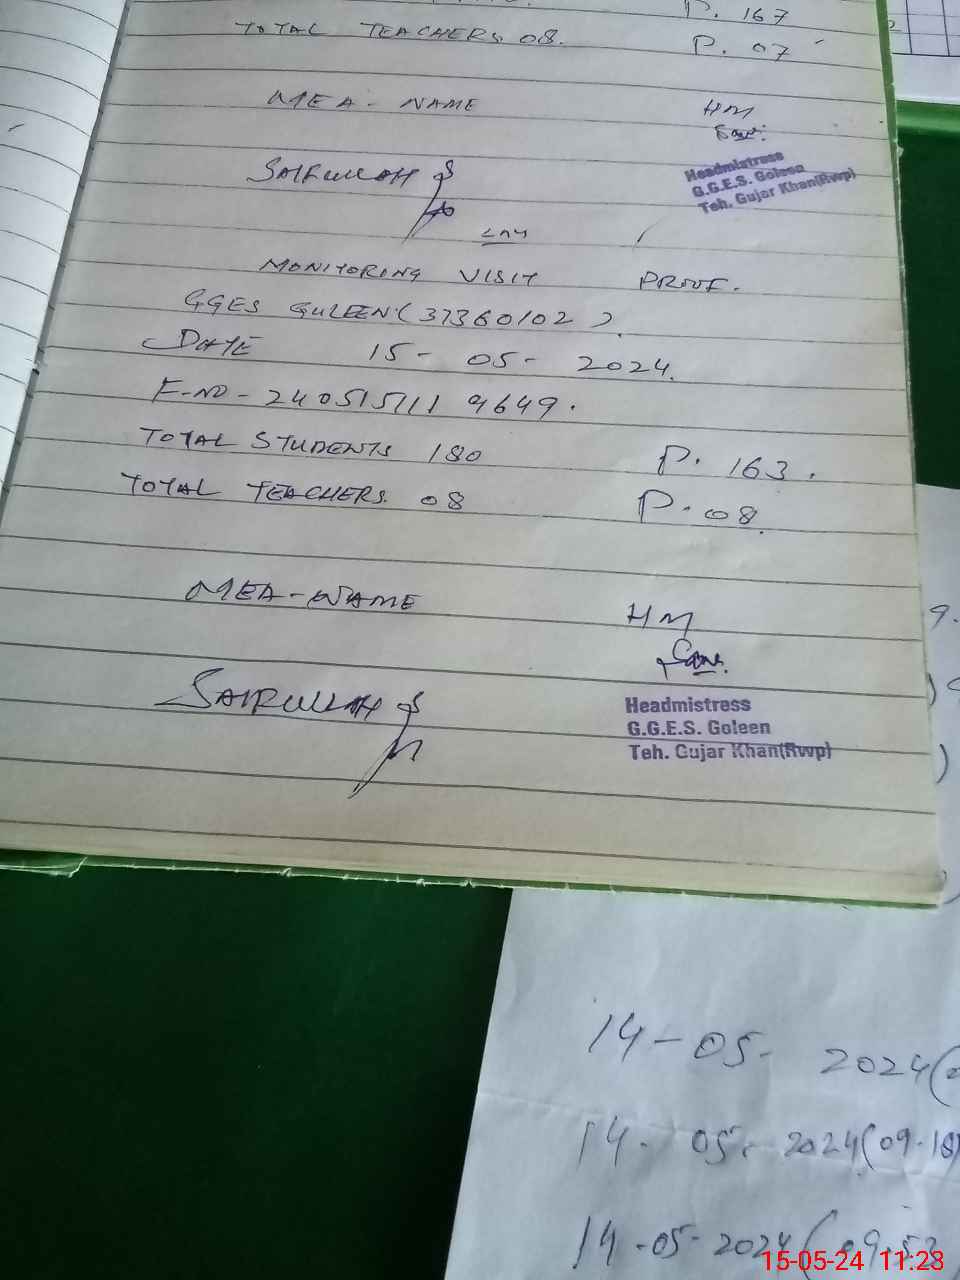 P. 167
TOTAL TEACHERS 08. P. 07
MEA - NAME HM
Headmistress
G.G.E.S. Goleen
Teh. Gujar Khan(Rwp)
SAIFULLAH
MONITORING VISIT PROOF.
GGES GULEEN (37360102).
DATE 15-05-2024.
F-NO - 2405151119649.
TOTAL STUDENTS 180 P. 163.
TOTAL TEACHERS 08 P. 08.
MEA - NAME HM
SAIFULLAH
Headmistress
G.G.E.S. Goleen
Teh. Gujar Khan(Rwp)
14-05-2024(
14-05-2024(09-18)
14-05-2024(09-53
15-05-24 11:23